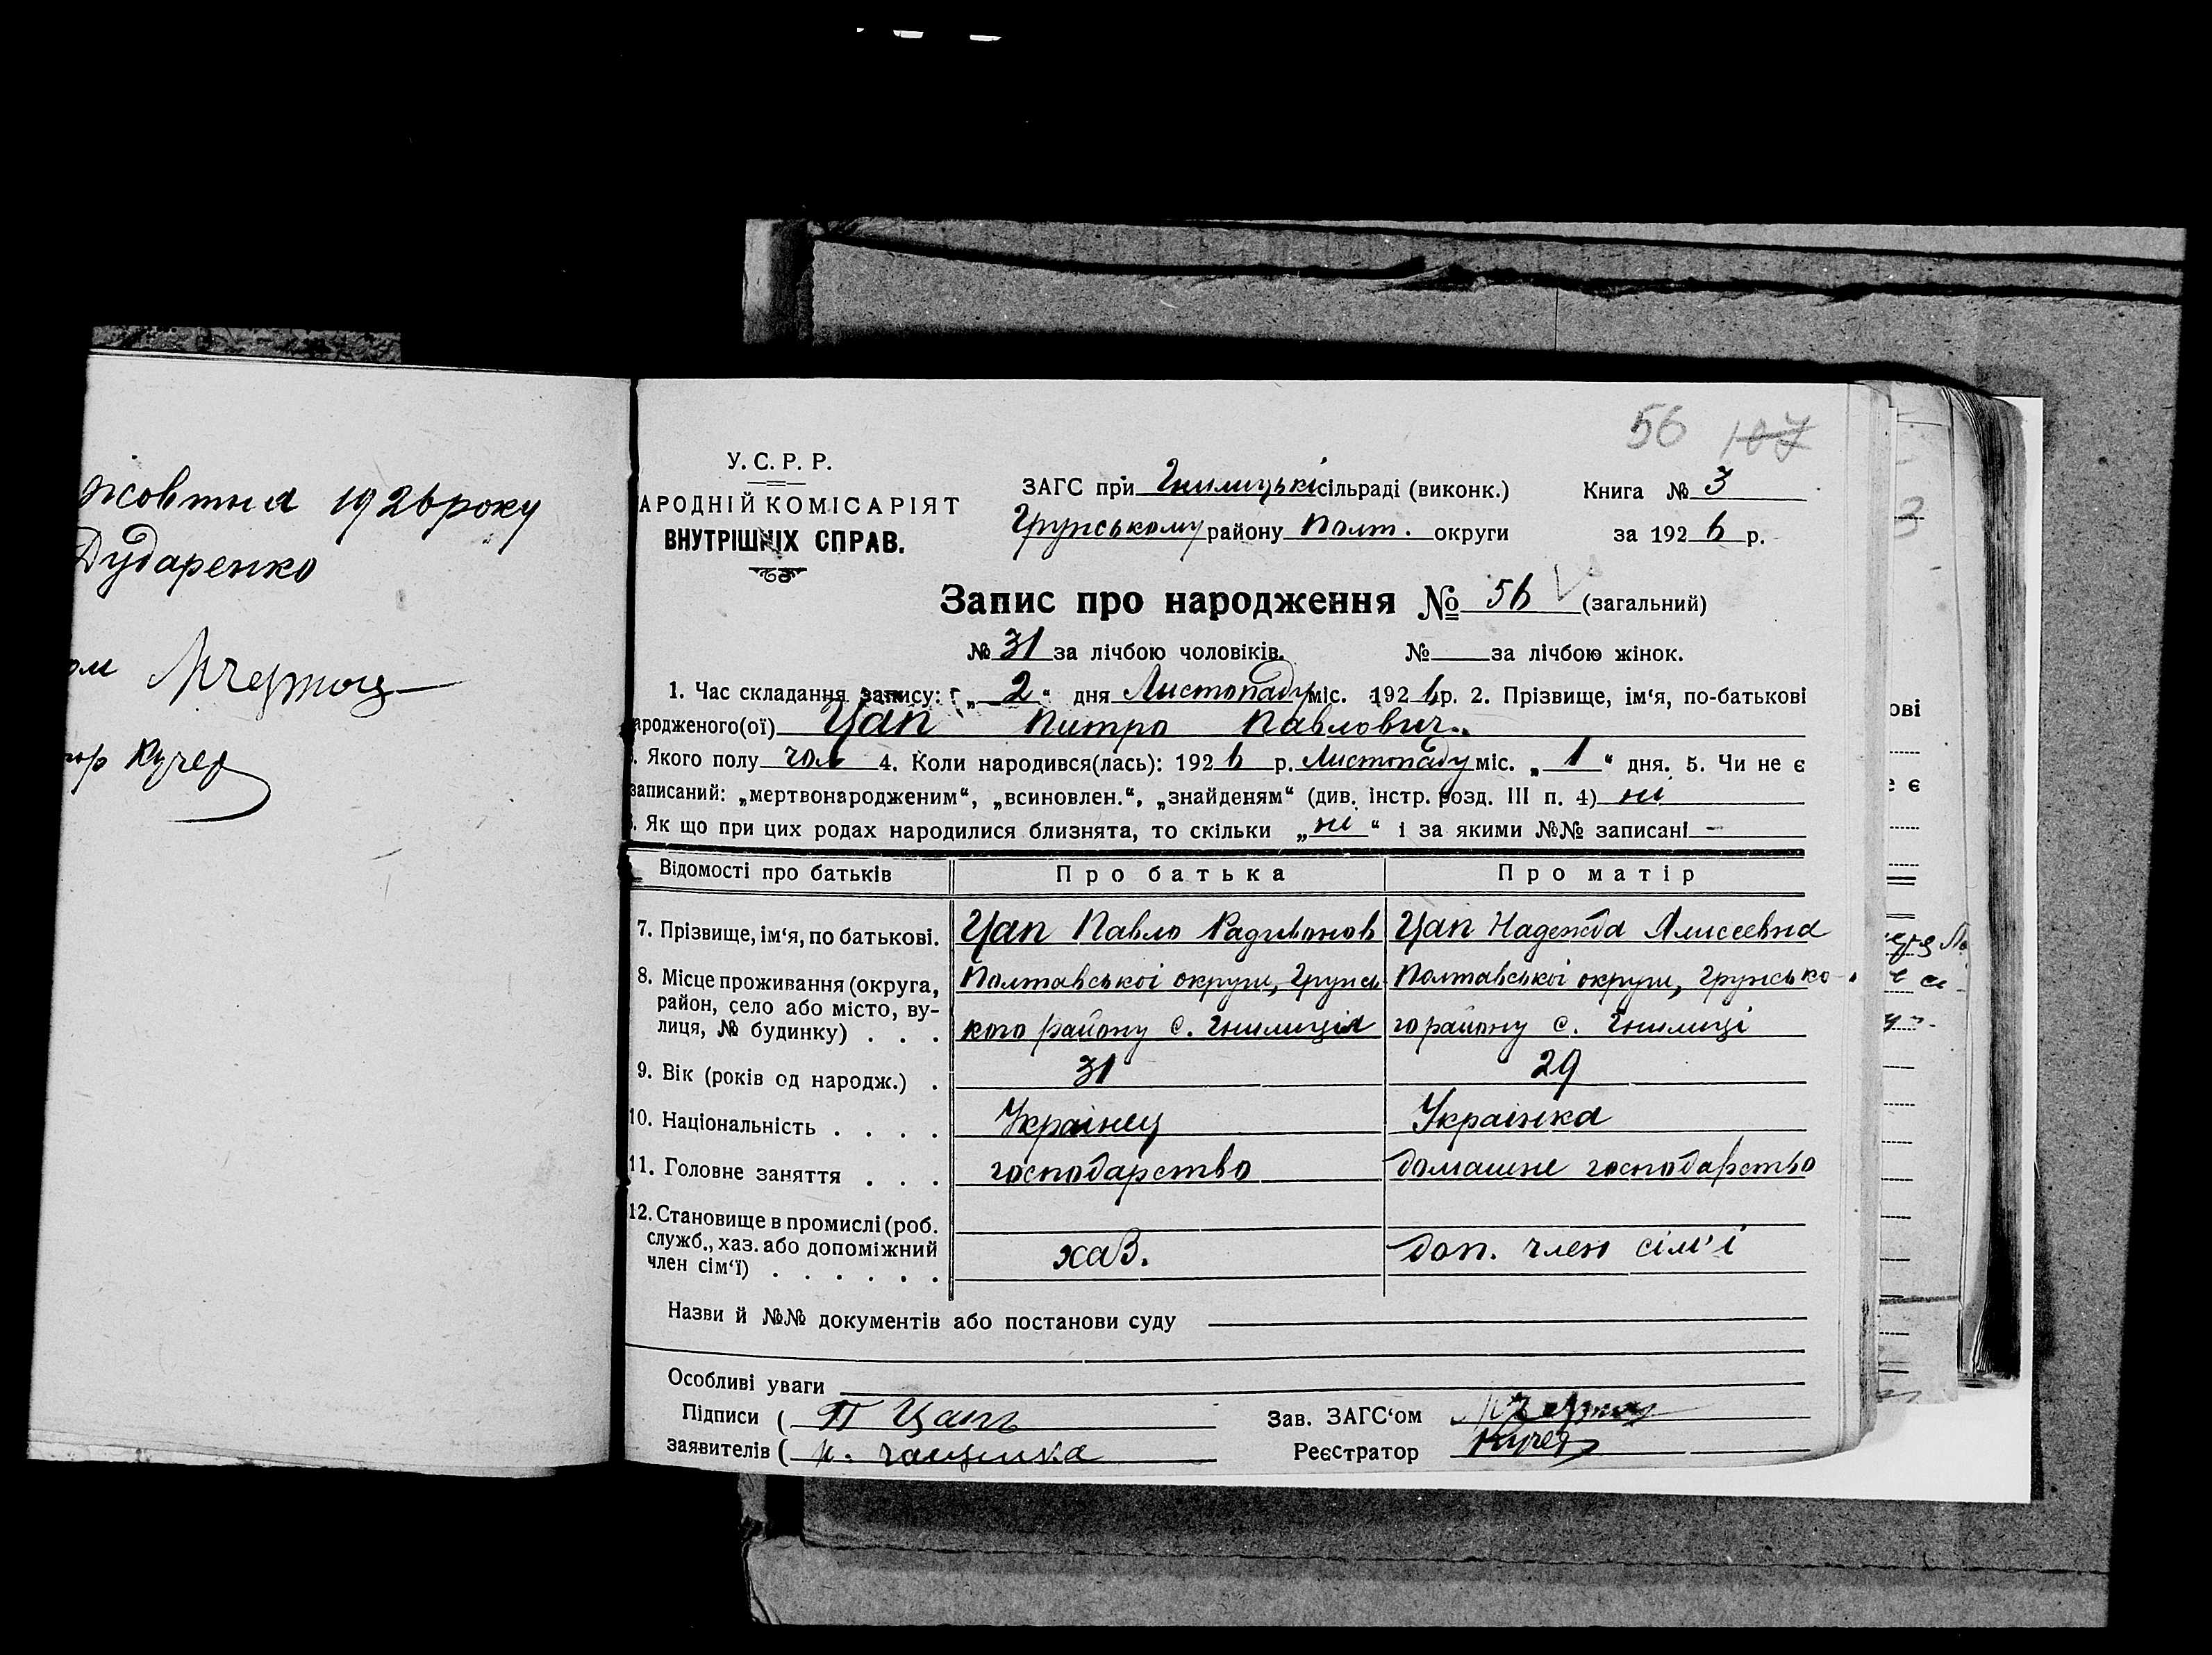 жовтня 1926 року
Дударенко
ом
ор Кучер
56 107
У. С. Р. Р.
АРОДНІЙ КОМІСАРІЯТ
ВНУТРІШНІХ СПРАВ.
ЗАГС при Гнилицькі сільраді (виконк.) Книга № 3
Грунському району Полт. округи за 1926 р.
Запис про народження № 56 (загальний)
№ 31 за лічбою чоловіків. № за лічбою жінок.
1. Час складання запису: „ 2 “ дня Листопаду міс. 1926 р. 2. Прізвище, ім‘я, по-батькові
ародженого(ої) Цап Питро Павлович.
. Якого полу чол 4. Коли народився(лась): 1926 р. Листопаду міс. „ 1 “ дня. 5. Чи не є
записаний: „мертвонародженим“, „всиновлен.“, „знайденям“ (див. інстр. розд. III п. 4) ні
. Як що при цих родах народилися близнята, то скільки „ ні “ і за якими №№ записані –
Відомості про батьків Про батька Про матір
7. Прізвище, ім‘я, по батькові. Цап Павло Радивонов Цап Надежда Алисеевна
8. Місце проживання (округа, Полтавської округи, Грунсь Полтавської округи, Грунсько-
район, село або місто, ву-
лиця, № будинку) . . . кого району с. Гнилиція го району с. Гнилиці
9. Вік (років од народж.) . 31 29
10. Національність . . . . Українец Українка
11. Головне заняття . . . господарство домашне господарство
12. Становище в промислі (роб.
служб., хаз. або допоміжний хаз. доп. член сім'ї
член сім‘ї) . . . . . .
Назви й №№ документів або постанови суду
Особливі уваги
Підписи ( П Цапъ Зав. ЗАГС‘ом
заявителів ( Реєстратор Кучер
ові
є